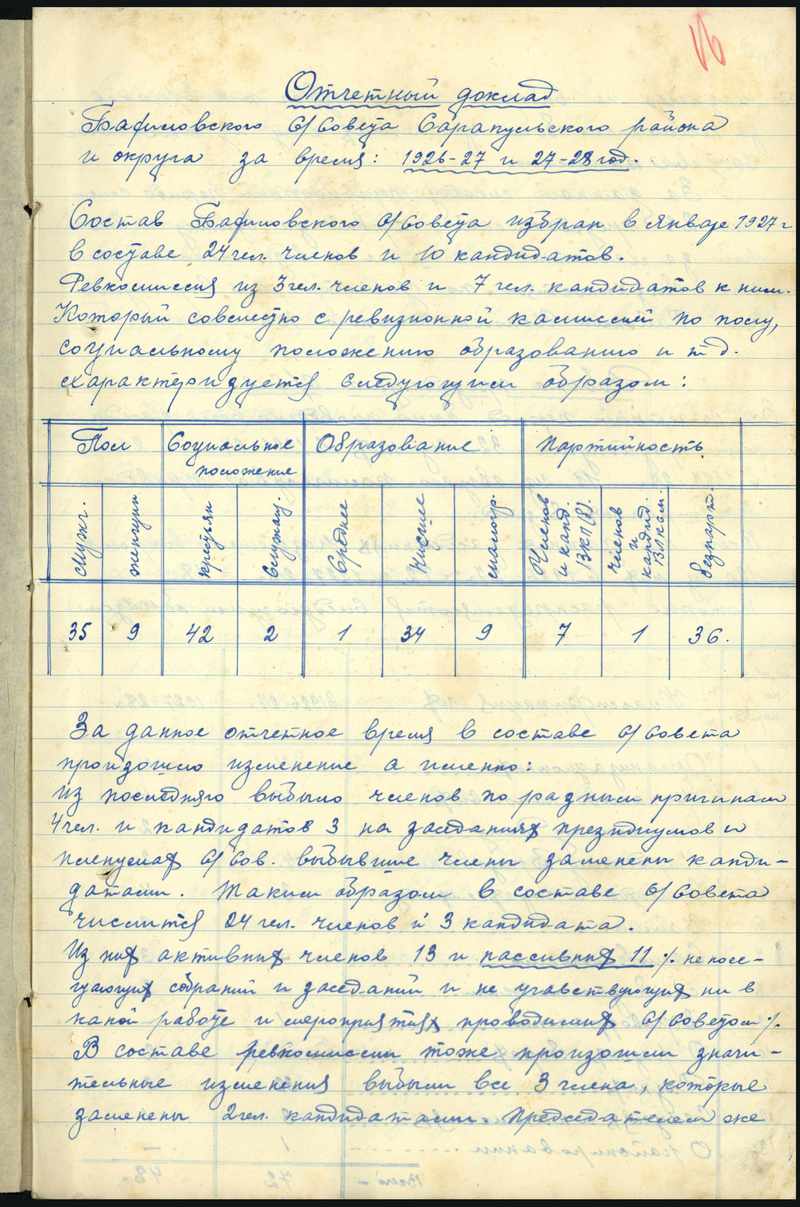 16
Отчетный доклад
С/Совета Сарапульского района
и округа за время: 1926-27 и 27-28 год.
Состав С/Совета избран в январе 1927 г
в составе 24 чел. членов и 10 кандидатов.
Ревкомиссия из 3 чел. членов и 7 чел. кандидатов к ним.
Который совместно с ревизионной камиссией по полу,
социальному положению образованию и т д.
характеризуется следующим образом:
Пол Социальное положение Образование Партийность
мужч. женщин крестьян служащ. среднее низшее малогр. Членов и канд. ВКП(б). членов и кандид. ВЛКСМ. безпарт.
35 9 42 2 1 34 9 7 1 36.
За данное отчетное время в составе С/Совета
произошло изменение а именно:
Из последняго выбыло членов по разным причинам
4 чел. и кандидатов 3 на заседаниях президиумов и
пленумах С/Сов. выбывшие члены заменены канди-
датами. Таким образом в составе С/Совета
числится 24 чел. членов и 3 кандидата.
Из них активных членов 13 и пассивных 11 % не посе-
щующих собраний и заседаний и не учавствующих ни в
какой работе и мероприятиях проводимых С/Советом %.
В составе ревкомиссии тоже произошли значи-
тельные изменения выбыли все 3 члена, которые
заменены 2 чел. кандидатами. Председателем же